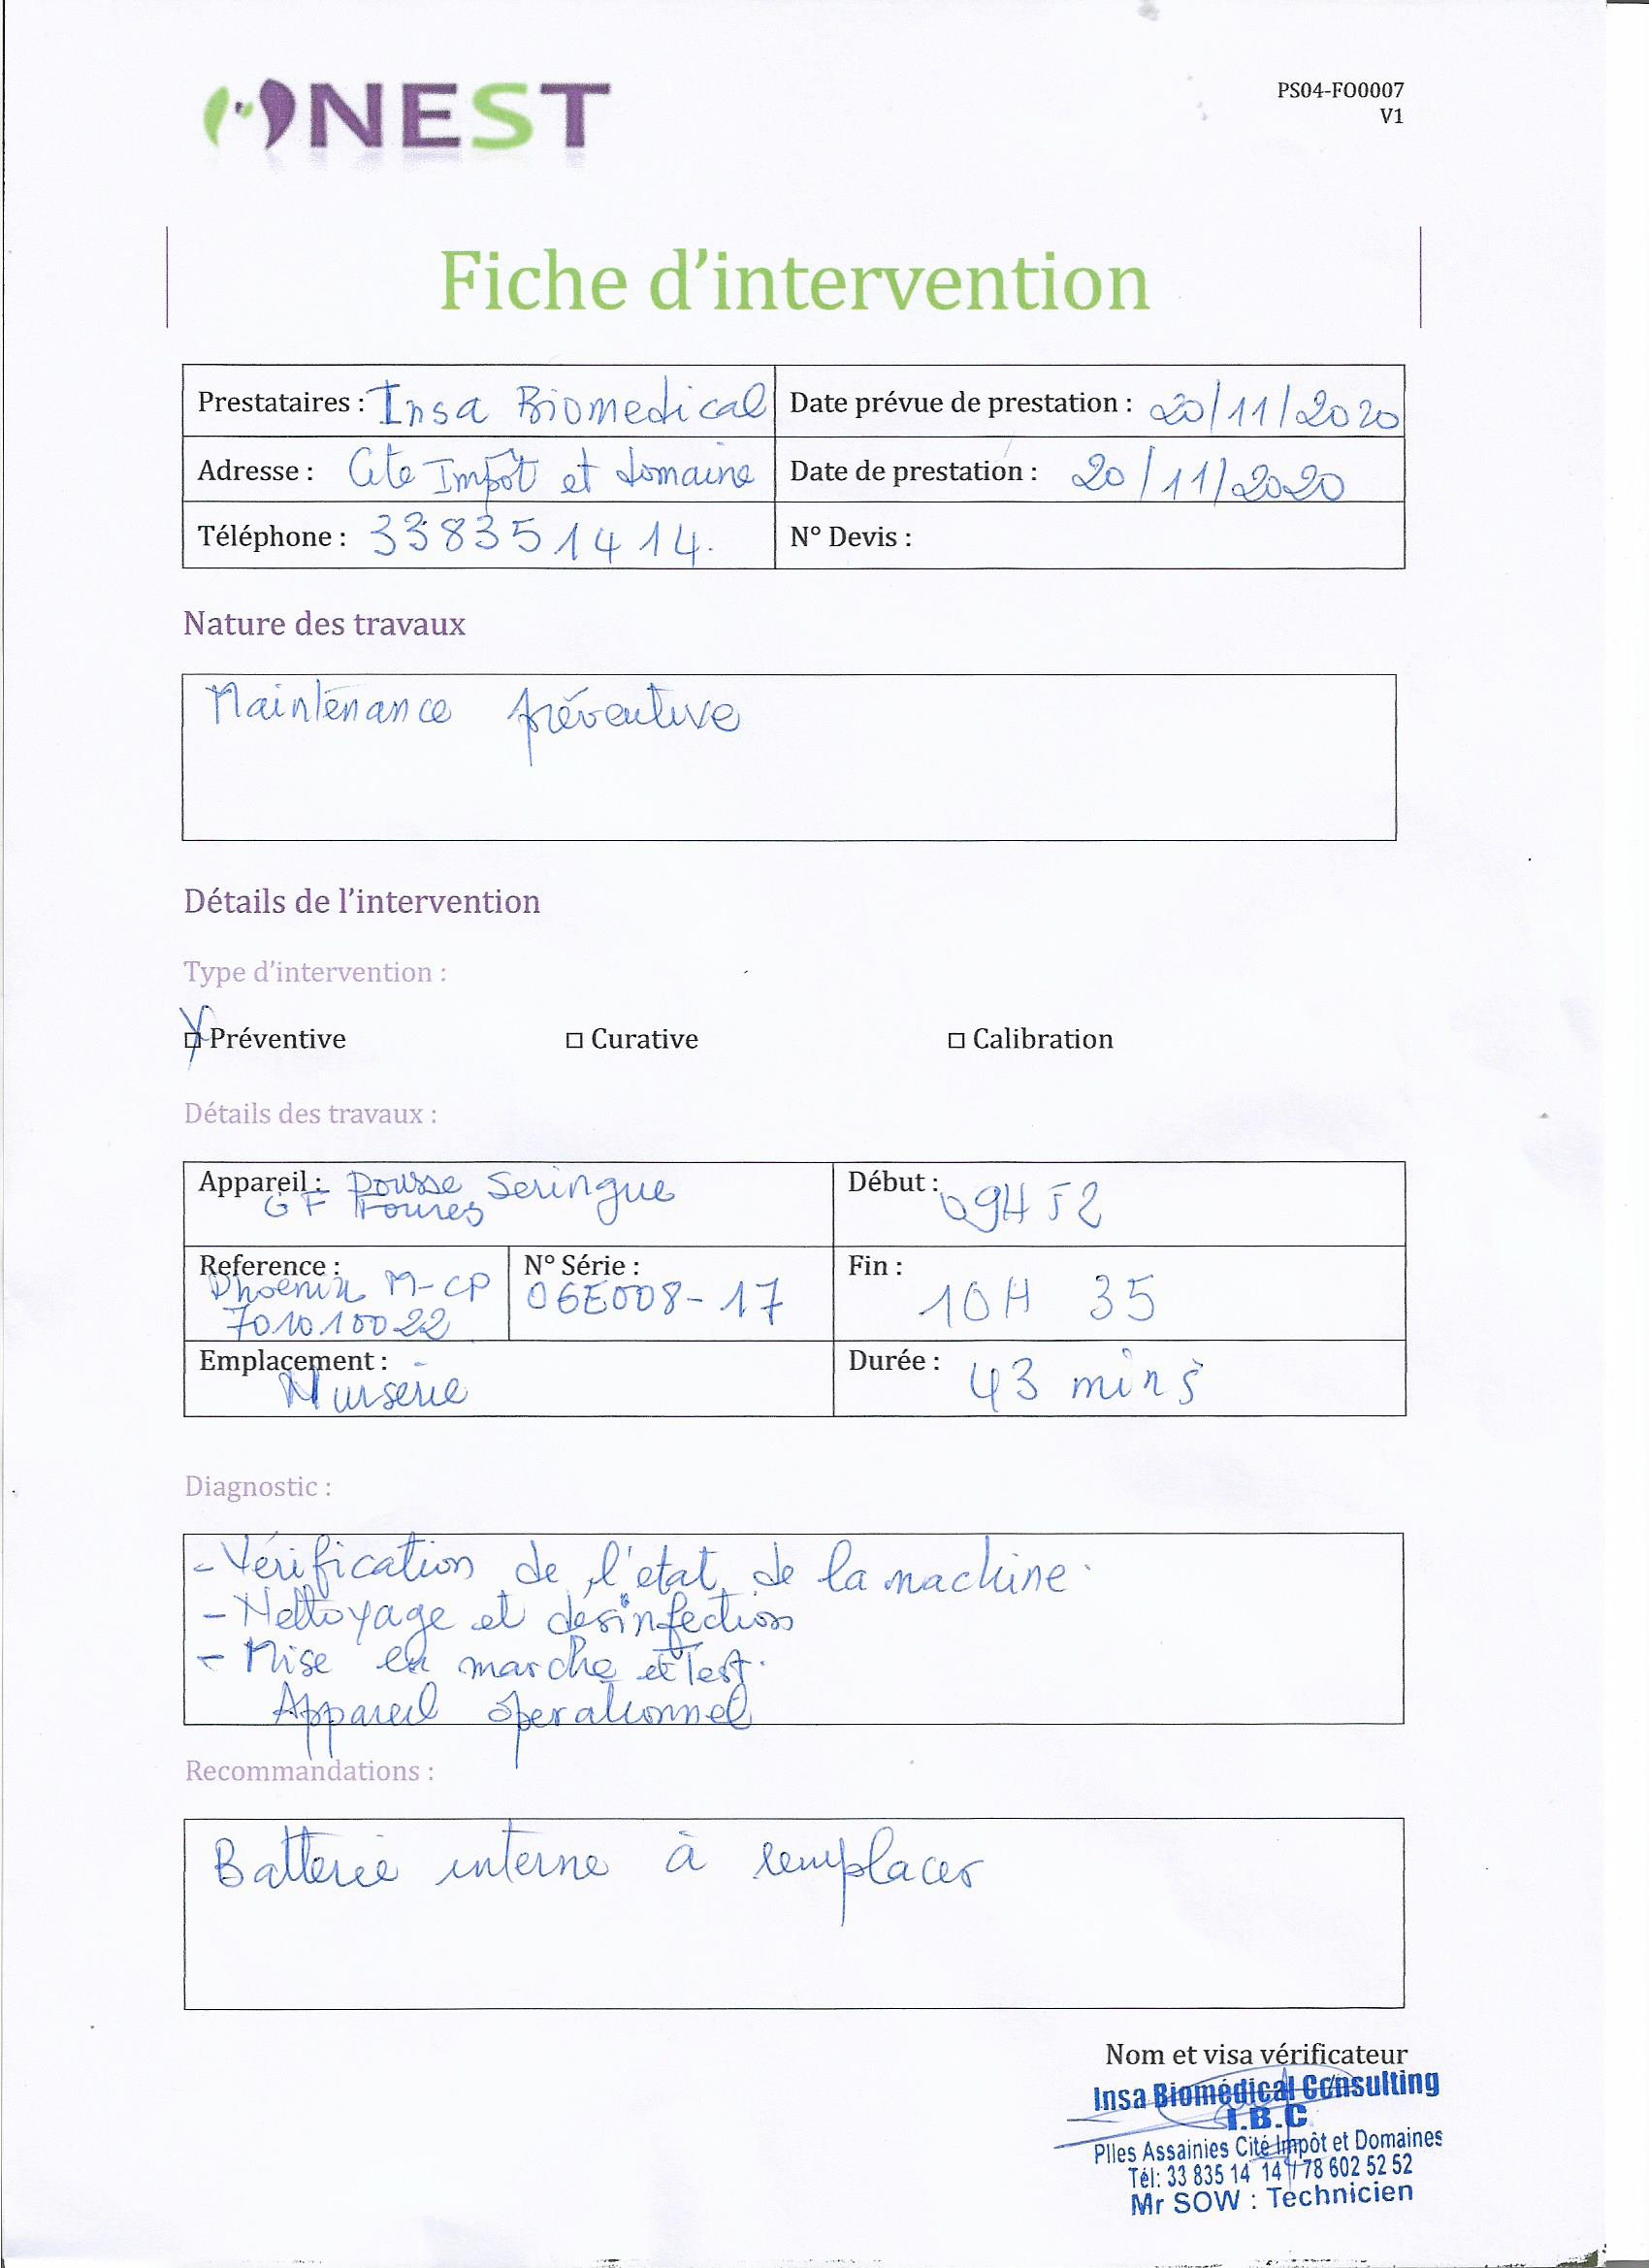 NEST
PS04-FO0007
V1
Fiche d'intervention
Prestataires : Insa Biomedical
Date prévue de prestation : 20/11/2020
Adresse : Cite Impôt et domaine
Date de prestation : 20/11/2020
Téléphone : 33 835 14 14.
N° Devis :
Nature des travaux
Maintenance préventive
Détails de l'intervention
Type d'intervention :
Préventive
Curative
Calibration
Détails des travaux :
Appareil : Pousse Seringue
Début : 09H52
Reference :
Phoenix M-CP
701010022
N° Série :
06E008-17
Fin :
10H 35
Emplacement :
Nurserie
Durée : 43 mins
Diagnostic :
- Vérification de l'etat de la machine.
- Nettoyage et desinfection
- Mise en marche et Test.
Appareil operationnel
Recommandations :
Batterie interne à remplacer
Nom et visa vérificateur
Insa Biomédical Consulting
I.B.C
Plles Assainies Cité Impôt et Domaines
Tél: 33 835 14 14 / 78 602 52 52
Mr SOW : Technicien